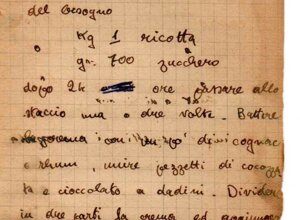 del bisogno
Kg 1 ricotta
o gr. 700 zucchero
dopo 2 ore passare allo
staccio una o due volte. Battere
la crema con un po' di cognac
o rhum, unire pezzetti di
ta e cioccolato a dadini. Divider
in due parti la crema ed aggiungere